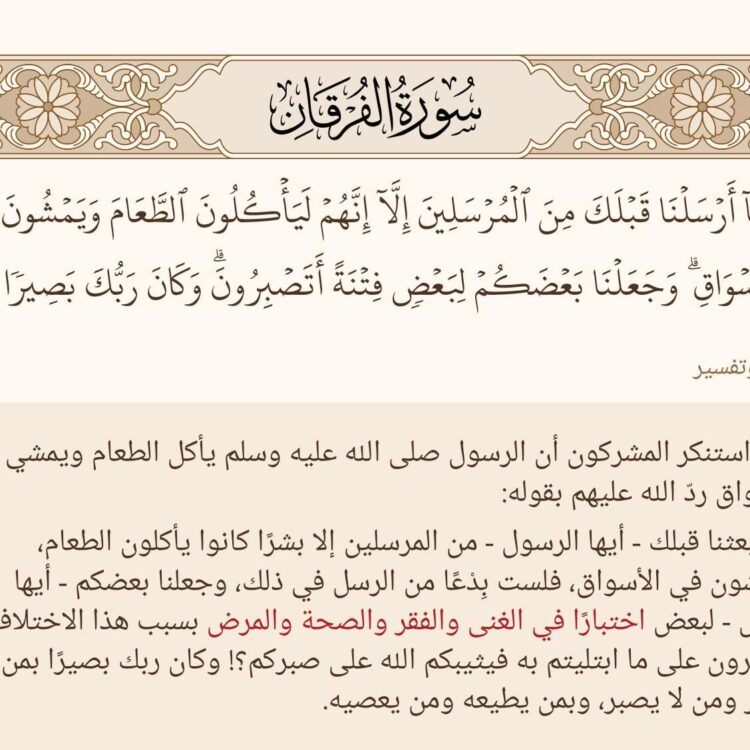 سُورَةُ الْفُرْقَانِ
أَرۡسَلۡنَا قَبۡلَكَ مِنَ ٱلۡمُرۡسَلِينَ إِلَّآ إِنَّهُمۡ لَيَأۡكُلُونَ ٱلطَّعَامَ وَيَمۡشُونَ
وَجَعَلۡنَا بَعۡضَكُمۡ لِبَعۡضٖ فِتۡنَةً أَتَصۡبِرُونَۗ وَكَانَ رَبُّكَ بَصِيرٗا
وتفسير
استنكر المشركون أن الرسول صلى الله عليه وسلم يأكل الطعام ويمشي
واق ردّ الله عليهم بقوله:
عثنا قبلك - أيها الرسول - من المرسلين إلا بشرًا كانوا يأكلون الطعام،
ون في الأسواق، فلست بِدْعًا من الرسل في ذلك، وجعلنا بعضكم - أيها
- لبعض اختبارًا في الغنى والفقر والصحة والمرض بسبب هذا الاختلاف
رون على ما ابتليتم به فيثيبكم الله على صبركم؟! وكان ربك بصيرًا بمن
ومن لا يصبر، وبمن يطيعه ومن يعصيه.